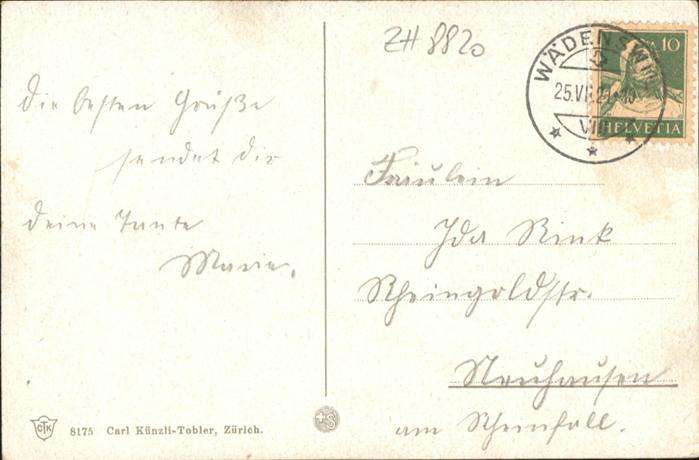 ZH 8820
WÄDENSWIL
25.VI.
VIII
10
HELVETIA
Die besten Grüße
sendet dir
deine Tante
Marie.
Fräulein
Ida Rink
Rheingoldstr.
Neuhausen
am Rheinfall.
CTK
8175 Carl Künzli-Tobler, Zürich.